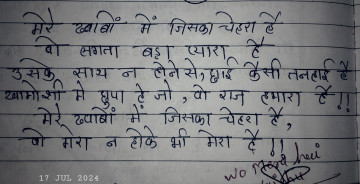 मेरे ख्वाबों में जिसका चेहरा है
वो लगता बड़ा प्यारा है
उसके साथ न होने से, छाई कैसी तनहाई है
खामोशी में छुपा है जो, वो राज हमारा है !!
मेरे ख्वाबों में जिसका चेहरा है,
वो मेरा न होके भी मेरा है !!
17 JUL 2024